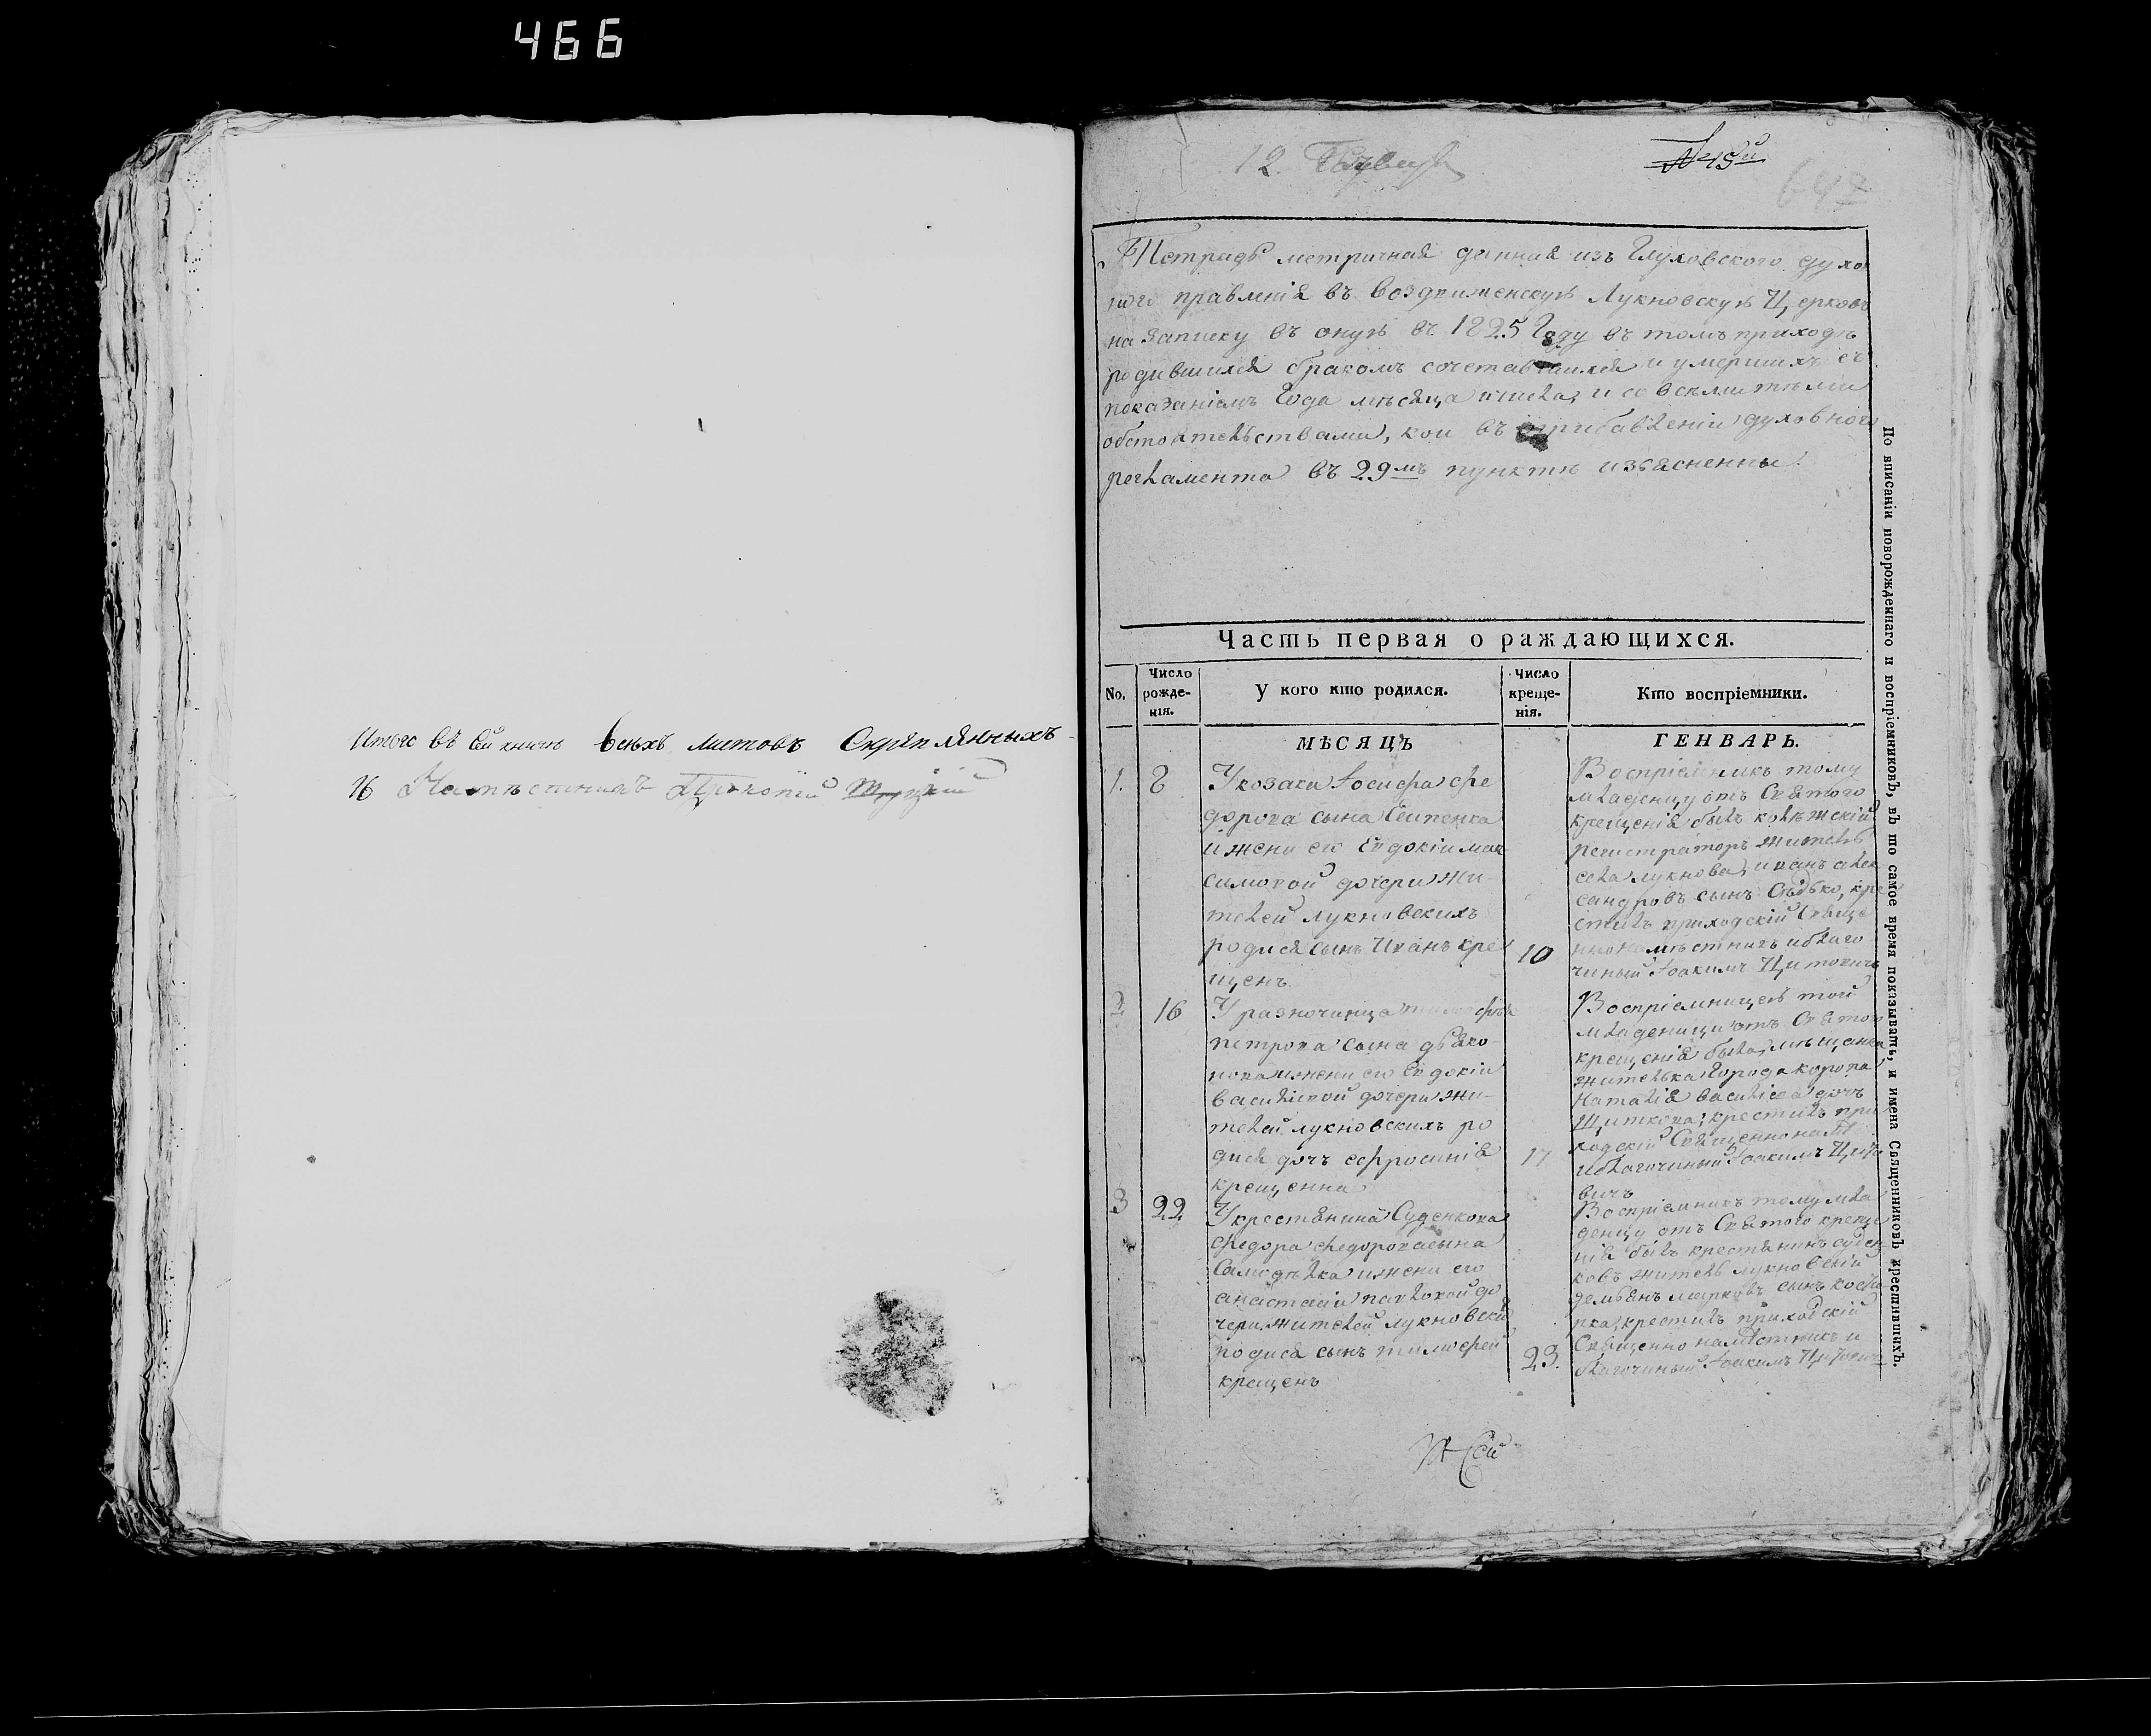 466
Итого въ сей книги всѣхъ листовъ Скрѣпленныхъ
16 Намѣстникъ Прокопій
12.
№ 15й
647
Тетрадь метричная данная изъ Глуховского духо
ного правленія въ воздвиженскую Лукновскую Церковь
на записку въ оную въ 1825 Году въ томъ приходѣ
родившихся бракомъ сочетавшихся и умершихъ съ
показаніемъ Года мѣсяца и числа, и со всѣми тѣми
обстоятельствами, кои въ прибавленіи духовного
регламента въ 29мъ пунктѣ изъясненны.
Часть первая о раждающихся.
No.
Число рожде-нія.
У кого кто родился.
Число креще-нія.
Кто воспріемники.
МѢСЯЦЪ
ГЕНВАРЬ.
1.
8
У козака Іосифа Фе
дорова сына
и жени его Евдокіи мак
симовой дочери жи-
телей лукновскихъ
родися сынъ Иванъ кре
щенъ
10
Воспріемникъ тому
младенцу отъ Святого
крещенія былъ колѣжскій
регистраторъ житель
села лукнова, иванъ алек
сандровъ сынъ кре
стилъ приходскій Свяще
ннонамѣстникъ и благо
чиный Іоакимъ Цитовичъ
2
16
У разночинца тимофѣя
петрова сына дьяко
нова и жени его Евдокіи
василіевой дочери жи-
телей лукновскихъ ро
дися дочъ ефросинія
крещенна
17
Воспріемницею той
младеници отъ Святого
крещенія была, мѣщанка
жителька Города коропа
наталія василіева дочъ
Щиткова, крестилъ при
ходскій Священнонамѣ
и благочиный Іоакимъ Цито
вичъ
3
22
У крестянина Суденкова
Федора федорова сына
Самодѣлка и жени его
анастасіи павловой до
чери жителей лукновски
родися сынъ тимофей
крещенъ
23.
Воспріемникъ тому мла
денцу отъ Святого креще
нія былъ крестянинъ суден
ковъ житель лукновскій
демьянъ марковъ сынъ
крестилъ приходскій
Священно намѣстникъ и
благочиный Іоакимъ Цитович
По вписаніи новорожденнаго и воспріемниковъ, въ то самое время показывать, и имена Священниковъ крестившихъ.